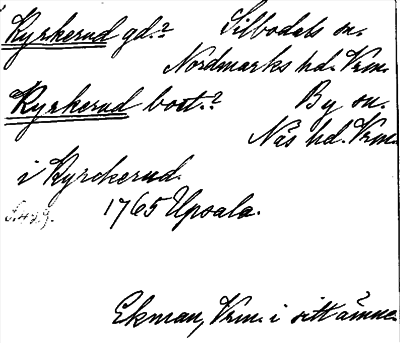 Kyrkerud gd.? Silbodals sn.
Nordmarks hd. Vrm.
Kyrkerud bost.? By sn.
Näs hd. Vrm.
i Kyrckerud.
1765 Upsala.
Ekman, Vrm. i sitt ämne